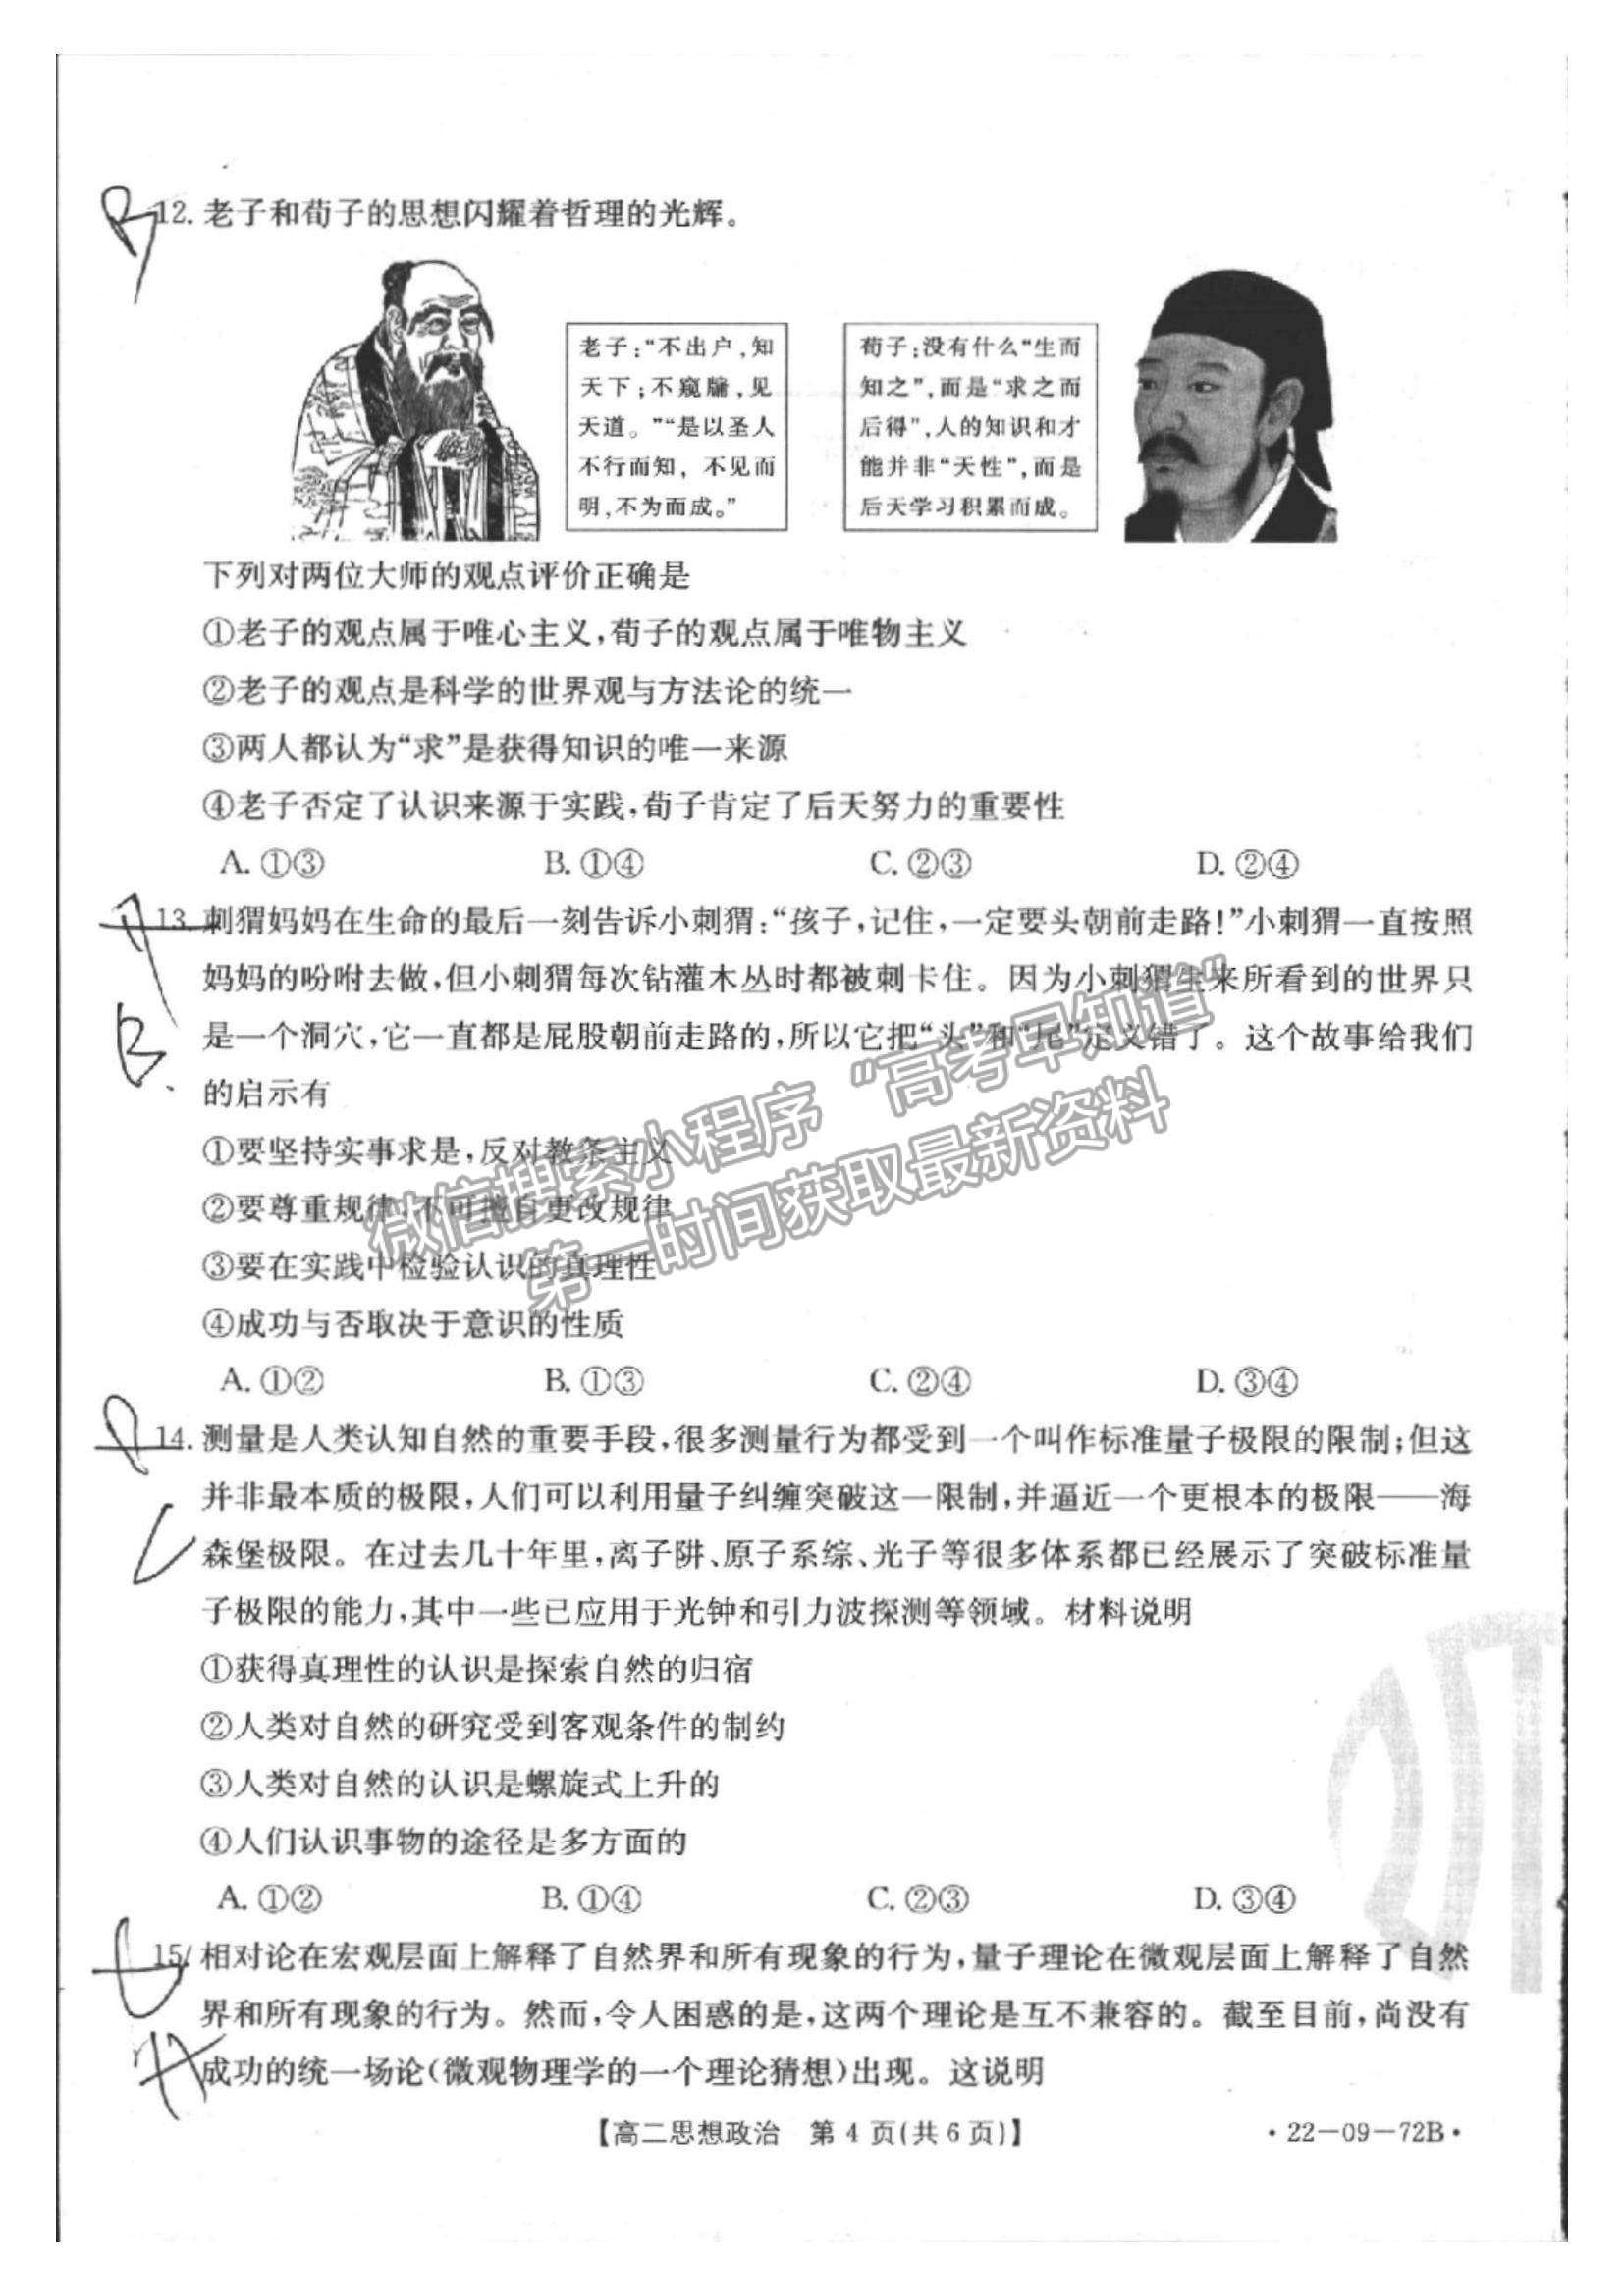 B
12. 老子和荀子的思想闪耀着哲理的光辉。
老子:“不出户,知
天下;不窥牖,见
天道。”“是以圣人
不行而知,不见而
明,不为而成。”
荀子:没有什么“生而
知之”,而是“求之而
后得”,人的知识和才
能并非“天性”,而是
后天学习积累而成。
下列对两位大师的观点评价正确是
①老子的观点属于唯心主义,荀子的观点属于唯物主义
②老子的观点是科学的世界观与方法论的统一
③两人都认为“求”是获得知识的唯一来源
④老子否定了认识来源于实践,荀子肯定了后天努力的重要性
A. ①③ B. ①④ C. ②③ D. ②④
13. 刺猬妈妈在生命的最后一刻告诉小刺猬:“孩子,记住,一定要头朝前走路!”小刺猬一直按照
妈妈的吩咐去做,但小刺猬每次钻灌木丛时都被刺卡住。因为小刺猬生来所看到的世界只
B
是一个洞穴,它一直都是屁股朝前走路的,所以它把“头”和“尾”定义错了。这个故事给我们
的启示有
①要坚持实事求是,反对教条主义
②要尊重规律,不可擅自更改规律
③要在实践中检验认识的真理性
④成功与否取决于意识的性质
A. ①② B. ①③ C. ②④ D. ③④
微信搜索小程序“高考早知道”
第一时间获取最新资料
14. 测量是人类认知自然的重要手段,很多测量行为都受到一个叫作标准量子极限的限制;但这
并非最本质的极限,人们可以利用量子纠缠突破这一限制,并逼近一个更根本的极限——海
森堡极限。在过去几十年里,离子阱、原子系综、光子等很多体系都已经展示了突破标准量
子极限的能力,其中一些已应用于光钟和引力波探测等领域。材料说明
①获得真理性的认识是探索自然的归宿
②人类对自然的研究受到客观条件的制约
③人类对自然的认识是螺旋式上升的
④人们认识事物的途径是多方面的
A. ①② B. ①④ C. ②③ D. ③④
15. 相对论在宏观层面上解释了自然界和所有现象的行为,量子理论在微观层面上解释了自然
界和所有现象的行为。然而,令人困惑的是,这两个理论是互不兼容的。截至目前,尚没有
成功的统一场论(微观物理学的一个理论猜想)出现。这说明
【高二思想政治 第 4 页(共 6 页)】
·22-09-72B·